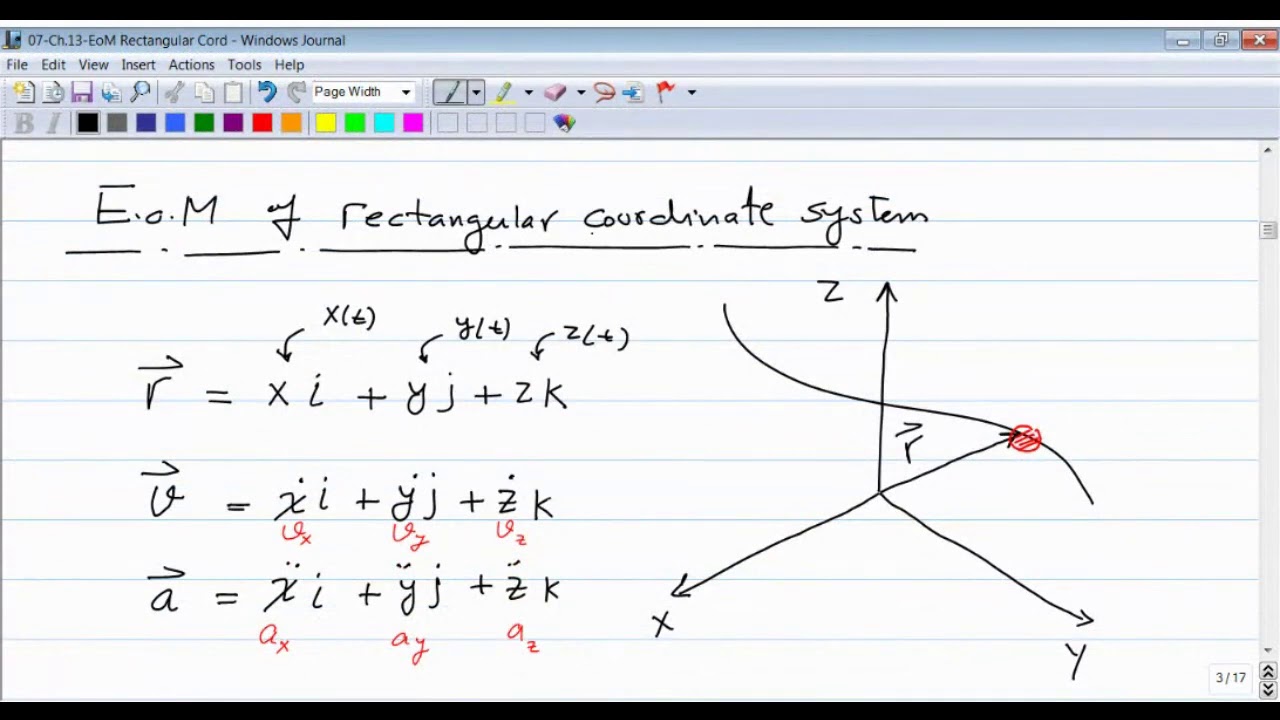 07-Ch.13-EoM Rectangular Cord - Windows Journal
File Edit View Insert Actions Tools Help
Page Width
B I
E.o.M of rectangular coordinate system
x(t) y(t) z(t)
r⃗ = x i + y j + z k
v⃗ = ẋ i + ẏ j + ż k
vx vy vz
a⃗ = ẍ i + ÿ j + z̈ k
ax ay az
z
r⃗
x
y
3 / 17